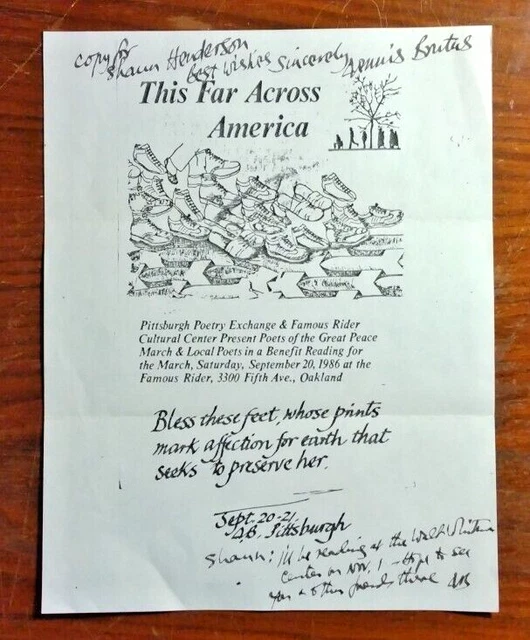 copy for
Shaun Henderson
best wishes Sincerely Dennis Brutus
This Far Across
America
Pittsburgh Poetry Exchange & Famous Rider
Cultural Center Present Poets of the Great Peace
March & Local Poets in a Benefit Reading for
the March, Saturday, September 20, 1986 at the
Famous Rider, 3300 Fifth Ave., Oakland
Bless these feet, whose prints
mark affection for earth that
seeks to preserve her.
Sept. 20-21
D.B. Pittsburgh
Shaun: I'll be reading at the Walt Whitman
Center on Nov. 1 - Hope to see
you & other friends there DB